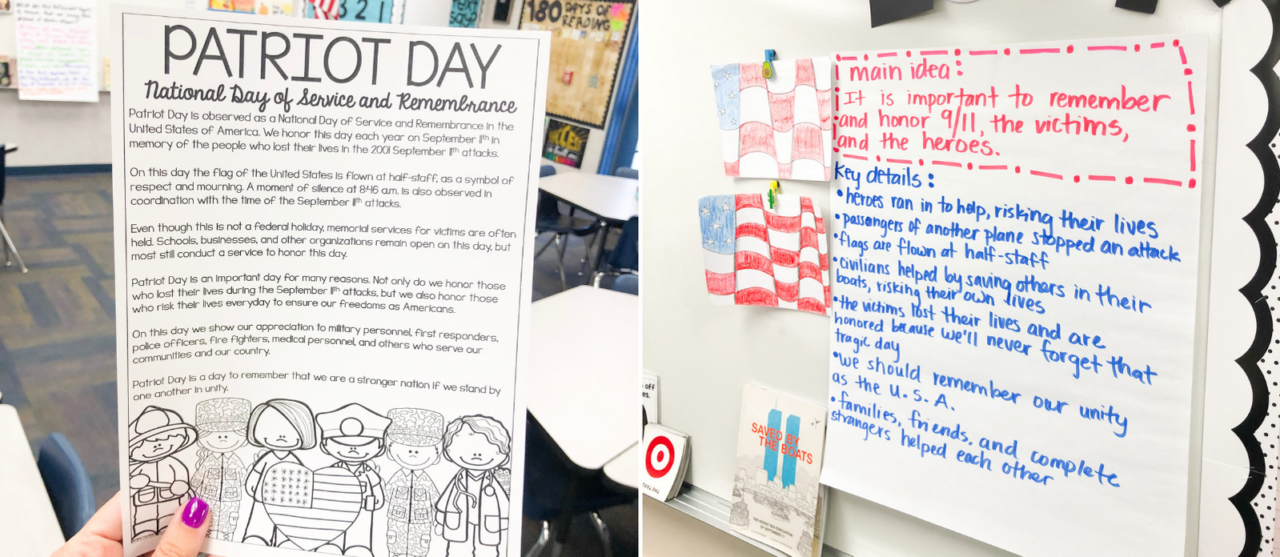 PATRIOT DAY
National Day of Service and Remembrance
Patriot Day is observed as a National Day of Service and Remembrance in the
United States of America. We honor this day each year on September 11th in
memory of the people who lost their lives in the 2001 September 11th attacks.
On this day the flag of the United States is flown at half-staff, as a symbol of
respect and mourning. A moment of silence at 8:46 a.m. is also observed in
coordination with the time of the September 11th attacks.
Even though this is not a federal holiday, memorial services for victims are often
held. Schools, businesses, and other organizations remain open on this day, but
most still conduct a service to honor this day.
Patriot Day is an important day for many reasons. Not only do we honor those
who lost their lives during the September 11th attacks, but we also honor those
who risk their lives everyday to ensure our freedoms as Americans.
On this day we show our appreciation to military personnel, first responders,
police officers, fire fighters, medical personnel, and others who serve our
communities and our country.
Patriot Day is a day to remember that we are a stronger nation if we stand by
one another in unity.
321
180 DAYS OF
READING
main idea:
It is important to remember
and honor 9/11, the victims,
and the heroes.
Key details:
•heroes ran in to help, risking their lives
•passengers of another plane stopped an attack
•flags are flown at half-staff
•civilians helped by saving others in their
boats, risking their own lives
•the victims lost their lives and are
honored because we'll never forget that
tragic day
•we should remember our unity
as the U.S.A.
•families, friends, and complete
strangers helped each other
SAVED BY
THE BOATS